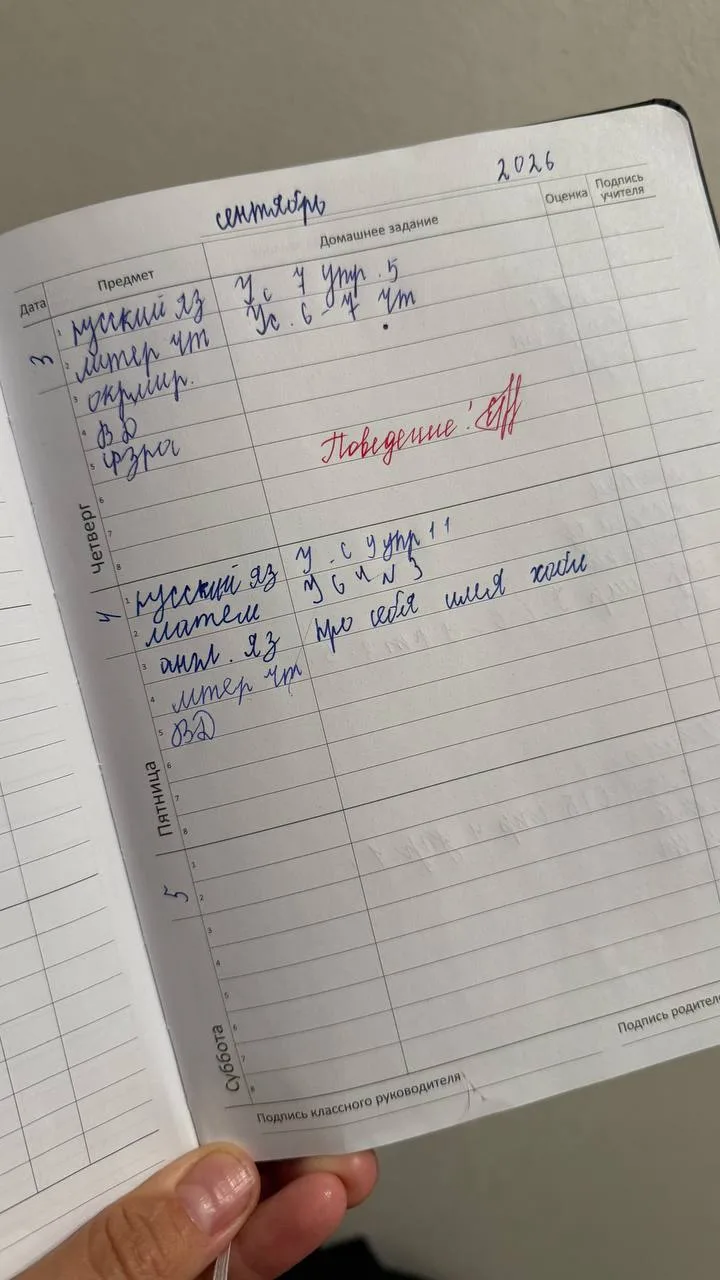 сентябрь 2026
Дата Предмет Домашнее задание Оценка Подпись учителя
3 Четверг
1 русский яз Ус 7 упр. 5
2 литер чт Ус. 6-7 чт
3 окр.мир.
4 ВД
5 физра
6
7
8
Поведение!
4 Пятница
1 русский яз У. с 9 упр 11
2 матем У 6 4 N 3
3 англ. яз про себя имея хобби
4 литер чт
5 ВД
6
7
8
5 Суббота
1
2
3
4
5
6
7
8
Подпись классного руководителя
Подпись родител